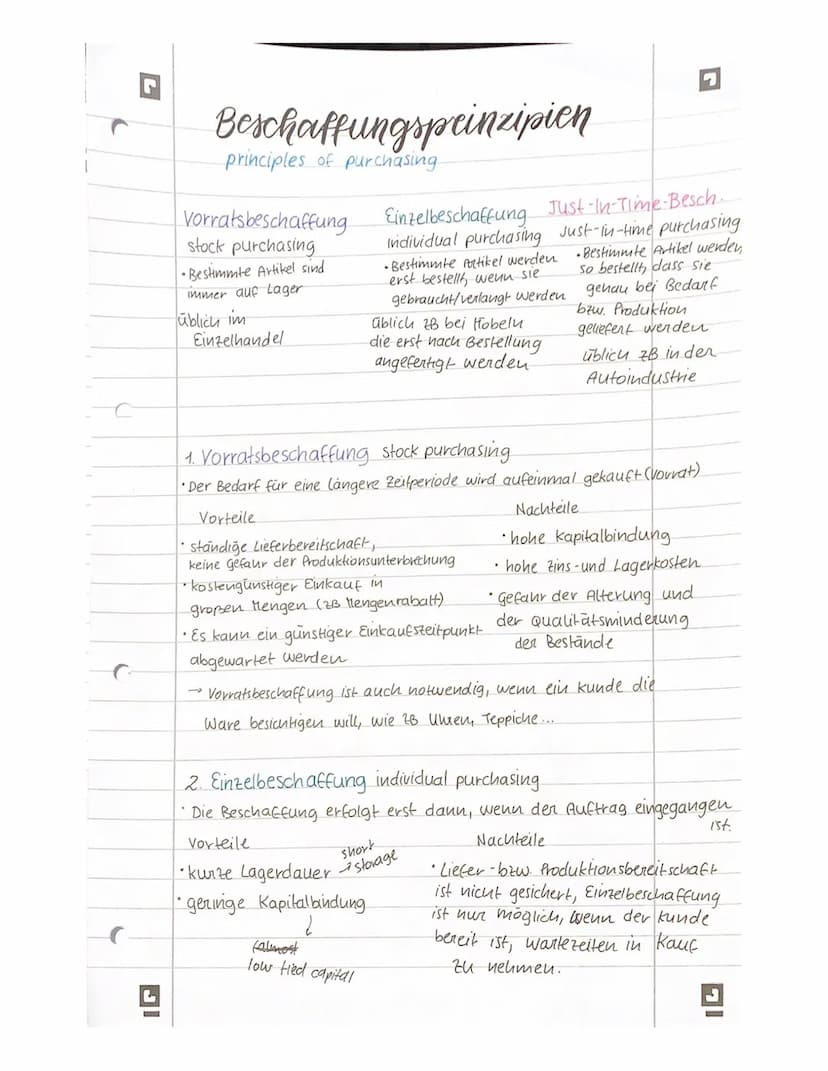 Beschaffungsprinzipien
principles of purchasing
Vorratsbeschaffung
stock purchasing
• Bestimmte Artikel sind
immer auf Lager
üblich im
Einzelhandel
Einzelbeschaffung
individual purchasing
• Bestimmte Artikel werden
erst bestellt, wenn sie
gebraucht/verlangt werden
üblich zB bei Möbeln
die erst nach Bestellung
angefertigt werden
Just-In-Time-Besch.
Just-In-time purchasing
• Bestimmte Artikel werden
so bestellt, dass sie
genau bei Bedarf
bzw. Produktion
geliefert werden
üblich zB in der
Autoindustrie
1. Vorratsbeschaffung stock purchasing
• Der Bedarf für eine längere Zeitperiode wird aufeinmal gekauft (Vorrat)
Vorteile
• ständige Lieferbereitschaft,
keine Gefahr der Produktionsunterbrechung
• kostengünstiger Einkauf in
großen Mengen (zB Mengenrabatt)
• Es kann ein günstiger Einkaufszeitpunkt
abgewartet werden
Nachteile
• hohe Kapitalbindung
• hohe Zins- und Lagerkosten
• Gefahr der Alterung und
der Qualitätsminderung
der Bestände
→ Vorratsbeschaffung ist auch notwendig, wenn ein Kunde die
Ware besichtigen will, wie zB Uhren, Teppiche...
2. Einzelbeschaffung individual purchasing
• Die Beschaffung erfolgt erst dann, wenn der Auftrag eingegangen
ist.
Vorteile
• kurze Lagerdauer → short
storage
• geringe Kapitalbindung
(almost
low tied capital
Nachteile
• Liefer- bzw. Produktionsbereitschaft
ist nicht gesichert, Einzelbeschaffung
ist nur möglich, wenn der Kunde
bereit ist, Wartezeiten in Kauf
zu nehmen.